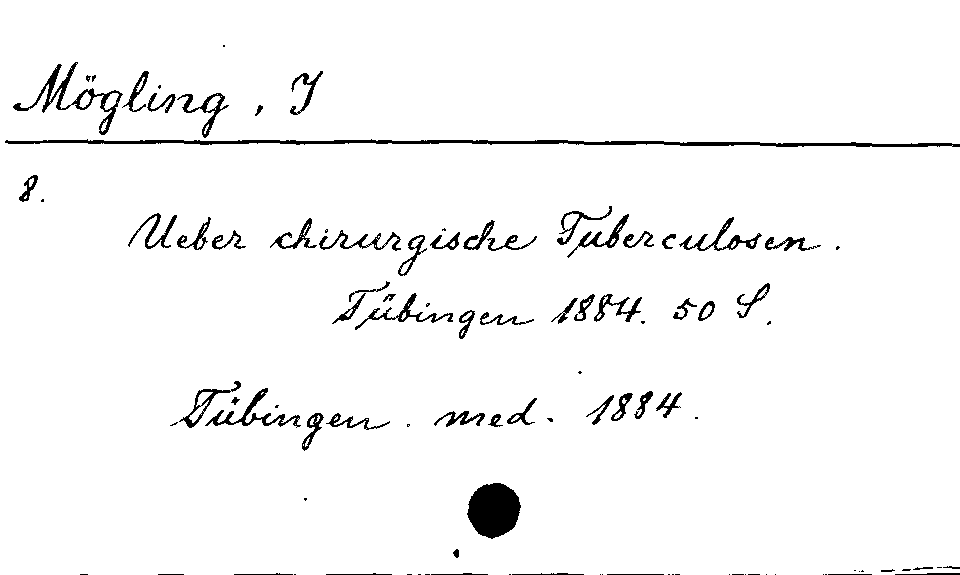 Mögling, J
8.
Ueber chirurgische Tuberculosen.
Tübingen 1884. 50 S.
Tübingen. med. 1884.